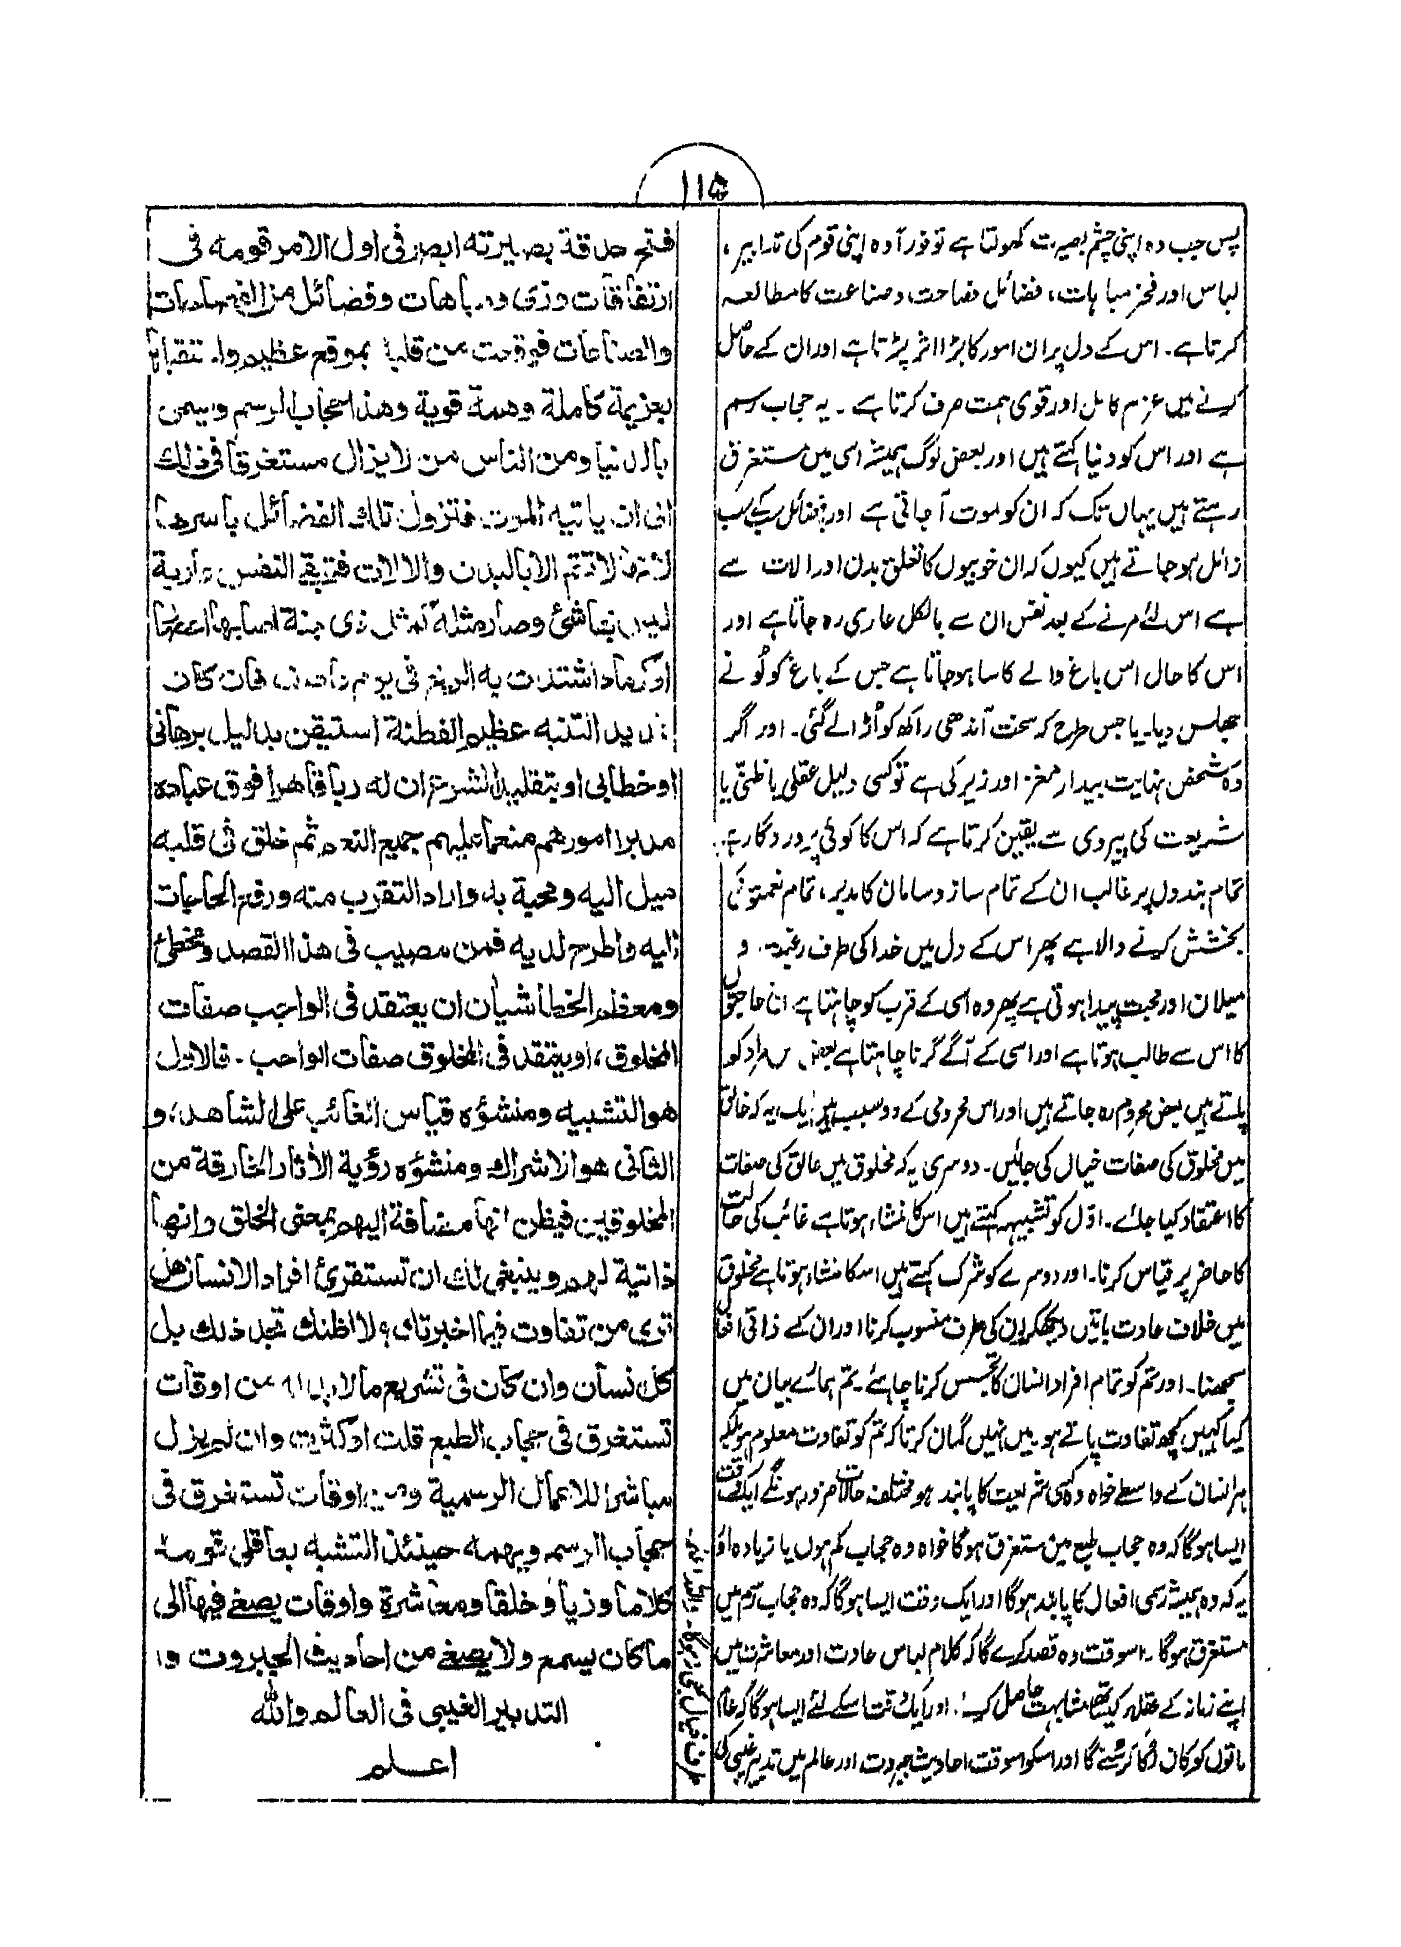 ۱۱۵
پس جب وہ اپنی چشم بصیرت کھولتا ہے تو فوراً وہ اپنی قوم کی تدابیر،
لباس اور فخر مباہات، فضائل فصاحت وصناعت کا مطالعہ
کرتا ہے۔ اس کے دل پر ان امور کا بڑا اثر پڑتا ہے اور ان کے حاصل
کرنے میں عزم کامل اور قوی ہمت صرف کرتا ہے۔ یہ حجاب رسم
ہے اور اس کو دنیا کہتے ہیں اور بعض لوگ ہمیشہ اسی میں مستغرق
رہتے ہیں یہاں تک کہ ان کو موت آجاتی ہے اور فضائل سب کے سب
زائل ہو جاتے ہیں کیوں کہ ان خوبیوں کا تعلق بدن اور الات سے
ہے اس لئے مرنے کے بعد نفس ان سے بالکل عاری رہ جاتا ہے اور
اس کا حال اس باغ والے کا سا ہو جاتا ہے جس کے باغ کو لُو نے
جھلس دیا۔ یا جس طرح کہ سخت آندھی راکھ کو اُڑا لے گئی۔ اور اگر
وہ شخص نہایت بیدار مغز اور زیرکی ہے تو کسی دلیل عقلی یا ظنّی یا
شریعت کی پیروی سے یقین کرتا ہے کہ اس کا کوئی پروردگار ہے
تمام بندوں پر غالب ان کے تمام ساز وسامان کا مدبر، تمام نعمتونکی
بخشش کرنے والا ہے پھر اس کے دل میں خدا کی طرف رغبت و
میلان اور محبت پیدا ہوتی ہے پھر وہ اسی کے قرب کو چاہتا ہے ان حاجتوں
کا اس سے طالب ہوتا ہے اور اسی کے آگے گرنا چاہتا ہے بعض مراد کو
پلتے ہیں بعض محروم رہ جاتے ہیں اور اس محرومی کے دو سبب ہیں ایک یہ کہ خالق
میں مخلوق کی صفات خیال کی جائیں۔ دوسری یہ کہ مخلوق میں خالق کی صفات
کا اعتقاد کیا جائے۔ اوّل کو تشبیہہ کہتے ہیں اس کا منشاء ہوتا ہے غائب کی حالت
کا حاضر پر قیاس کرنا۔ اور دوسرے کو شرک کہتے ہیں اسکا منشاء ہوتا ہے مخلوق
میں خلاف عادت باتیں دیکھکر ان کی طرف منسوب کرنا اور ان کے ذاتی افعال
سمجھنا۔ اور تم کو تمام افراد انسان کا تجسس کرنا چاہئے۔ تم ہمارے بیان میں
کیا کہیں کچھ تفاوت پاتے ہو۔ میں نہیں گمان کرتا کہ تم کو تفاوت معلوم ہو بلکہ
ہر انسان کے واسطے خواہ وہ کسی شریعت کا پابند ہو مختلف حالات ضرور ہونگے ایک وقت
ایسا ہوگا کہ وہ حجاب طبع میں مستغرق ہوگا خواہ وہ حجاب کم ہوں یا زیادہ اور
یہ کہ وہ ہمیشہ رسمی افعال کا پابند ہوگا اور ایک وقت ایسا ہوگا کہ وہ حجاب رسم میں
مستغرق ہوگا۔ اسوقت وہ قصد کرے گا کہ کلام لباس عادت اور معاشرت میں
اپنے زمانہ کے عقلا کیساتھ مشابہت حاصل کرے۔ اور ایک وقت اسکے لئے ایسا ہوگا کہ عام
باتوں کو کان لگا کر سنے گا اور اسکو اسوقت احادیث جبروت اور عالم میں تدبیر غیبی کی
طرف خیال بھی نہ ہوگا۔ واللہ اعلم
فتح حدقة بصیرته ابصر فی اول الامر قومه فی
ارتفاقات وزی ومباهات وفضائل من الفصاحات
والصناعات فوقعت من قلبه بموقع عظیم واستقبلها
بعزیمة کاملة وهمة قویة وهذا حجاب الرسم ویسمی
بالدنیا ومن الناس من لا یزال مستغرقا فی ذلک
الی ان یاتیه الموت فتزول تلک الفضائل باسرها
لأنها لا تتم الا بالبدن والالات فتبقی النفس عاریة
لیس بها شئ وصار مثله کمثل ذی جنة اصابها اعصار
او کرماد اشتدت به الریح فی یوم عاصف فان کان
شدید التنبه عظیم الفطنة استیقن بدلیل برهانی
او خطابی او بتقلید الشرع ان له ربا قاهرا فوق عباده
مدبرا امورهم منعما علیهم جمیع النعم ثم خلق فی قلبه
میل الیه ومحبة به واراد التقرب منه ورفع الحاجات
الیه واطرح لدیه فمن مصیب فی هذا القصد ومخطئ
ومعظم الخطأ شیأن ان یعتقد فی الواجب صفات
المخلوق، او یعتقد فی المخلوق صفات الواجب۔ فالاول
هو التشبیه ومنشؤه قیاس الغائب علی الشاهد، و
الثانی هو الاشراک ومنشؤه رؤیة الأثار الخارقة من
المخلوقین فیظن انها مضافة الیهم بمعنی الخلق وانها
ذاتیة لهم وینبغی لک ان تستقرئ افراد الانسان هل
تری من تفاوت فیما اخبرتک؟ لا اظنک تجد ذلک بل
کل انسان وان کان فی تشریع ما لا بد له من اوقات
تستغرق فی حجاب الطبع قلت او کثرت وان لم یزل
مباشرا للاعمال الرسمیة ومن اوقات تستغرق فی
حجاب الرسم ویهمه حینئذ التشبه بعاقلی قومه
کلاما وزیا وخلقا ومعاشرة واوقات یصغی فیها الی
ما کان یسمع ولا یصغی من احادیث الجبروت و
التدبیر الغیبی فی العالم والله
اعلم